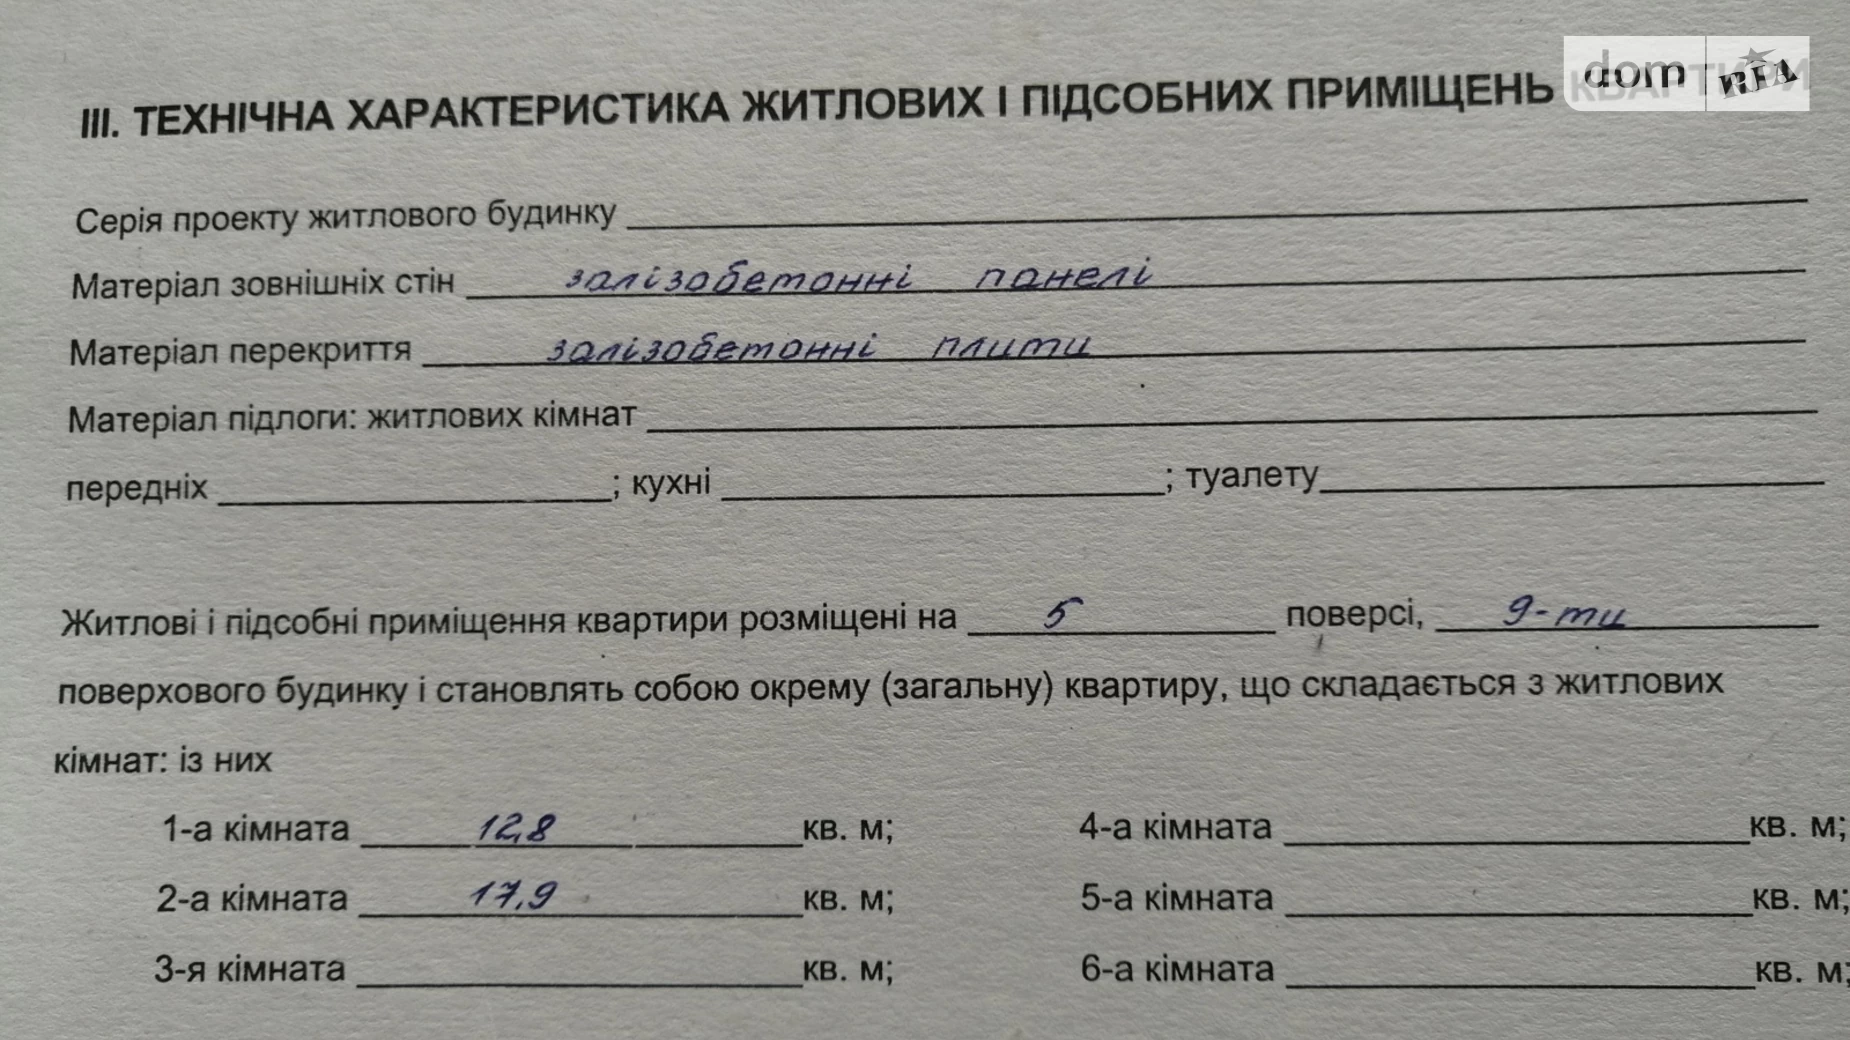 dom RIA
III. ТЕХНІЧНА ХАРАКТЕРИСТИКА ЖИТЛОВИХ І ПІДСОБНИХ ПРИМІЩЕНЬ КВАРТИРИ
Серія проекту житлового будинку
Матеріал зовнішніх стін залізобетонні панелі
Матеріал перекриття залізобетонні плити
Матеріал підлоги: житлових кімнат
передніх ; кухні ; туалету
Житлові і підсобні приміщення квартири розміщені на 5 поверсі, 9-ти
поверхового будинку і становлять собою окрему (загальну) квартиру, що складається з житлових
кімнат: із них
1-а кімната 12,8 кв. м; 4-а кімната кв. м;
2-а кімната 17,9 кв. м; 5-а кімната кв. м;
3-я кімната кв. м; 6-а кімната кв. м;